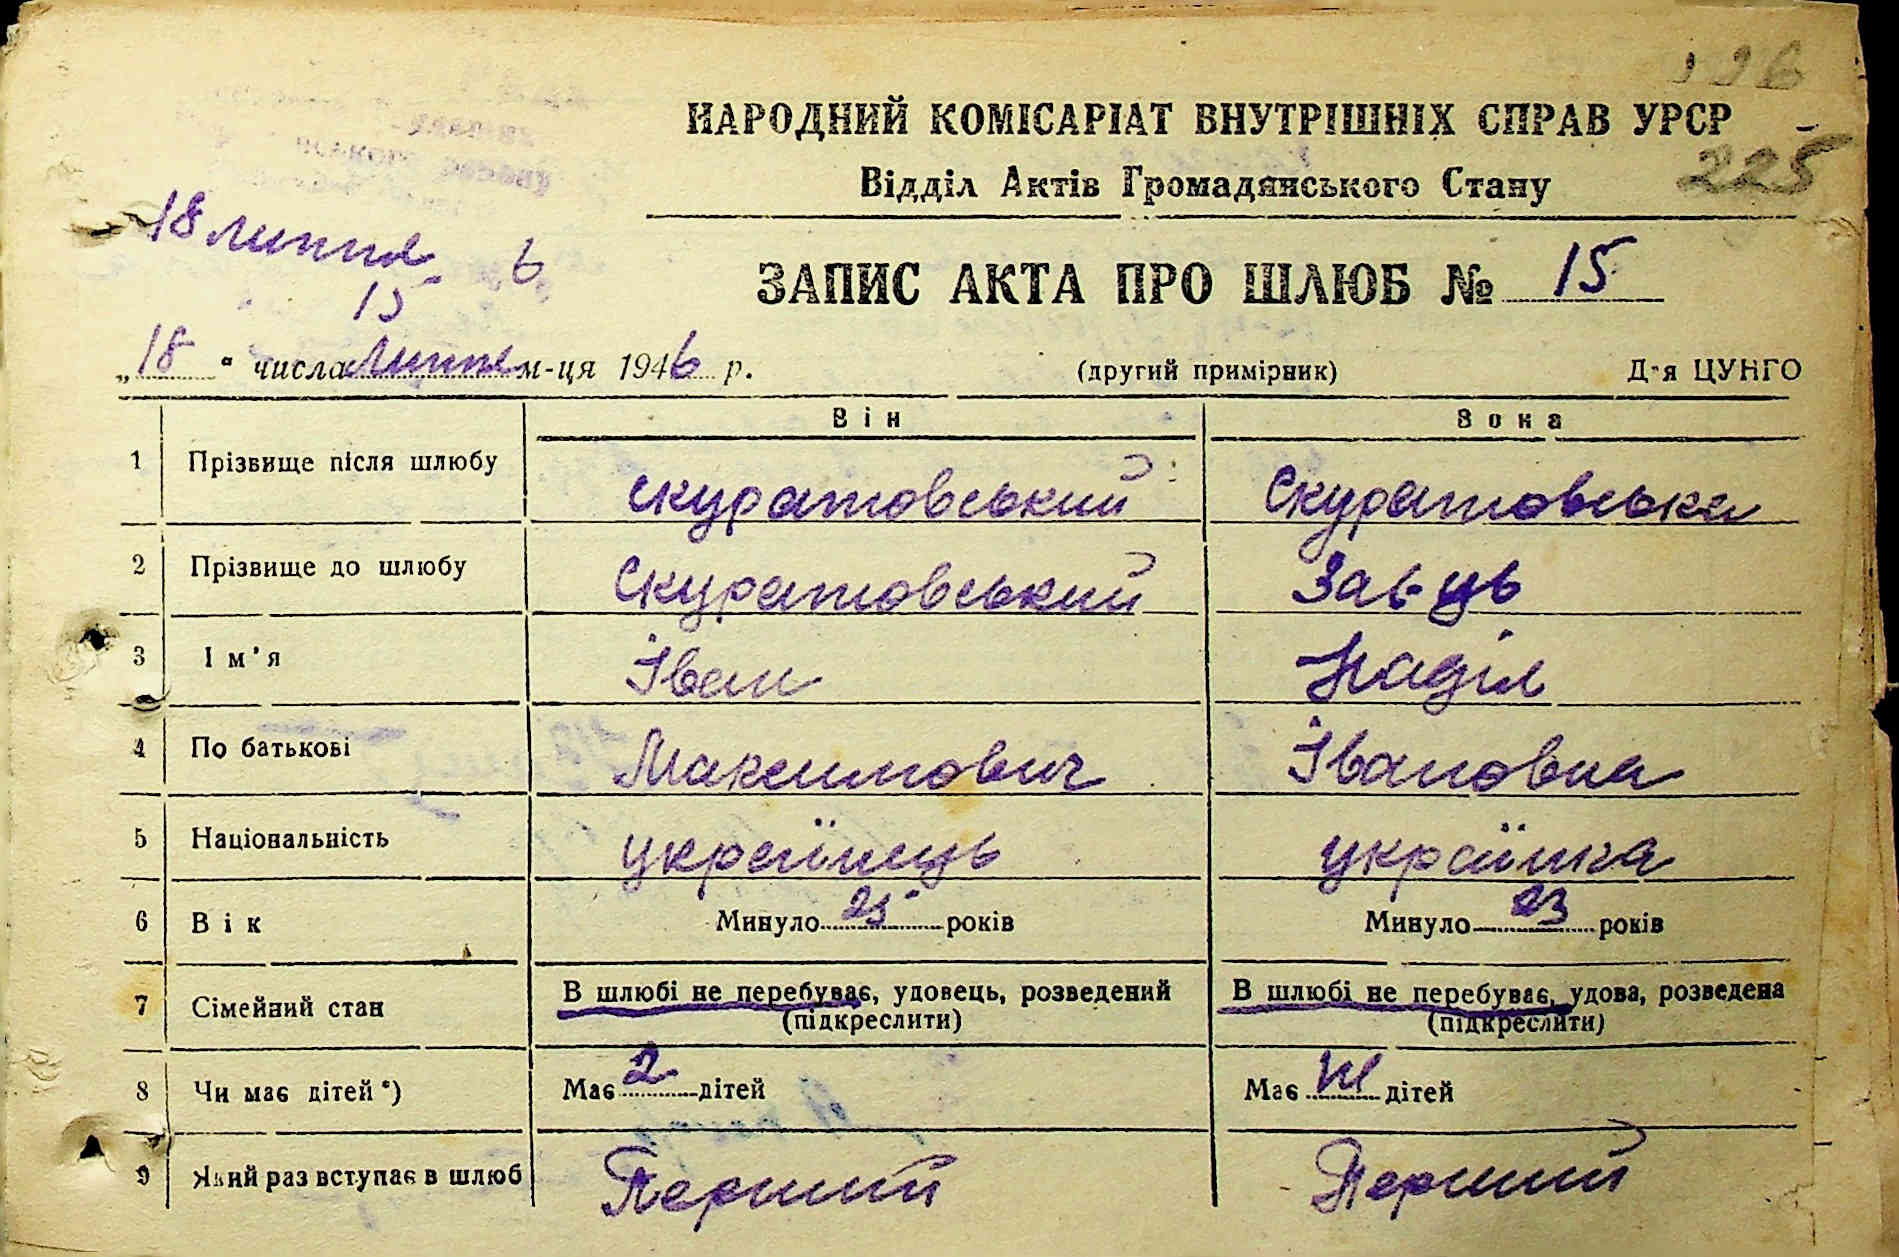 НАРОДНИЙ КОМІСАРІАТ ВНУТРІШНІХ СПРАВ УРСР
225
Відділ Актів Громадянського Стану
18 липня 6
15
ЗАПИС АКТА ПРО ШЛЮБ № 15
„18“ числа Липня м-ця 1946 р. (другий примірник) Д-я ЦУНГО
Він Вона
1 Прізвище після шлюбу скуратовський Скуратовська
2 Прізвище до шлюбу Скуратовський
3 Ім'я Іван Надія
4 По батькові Максимович Івановна
5 Національність українець українка
6 Вік Минуло 25 років Минуло 23 років
7 Сімейний стан В шлюбі не перебуває, удовець, розведений В шлюбі не перебуває, удова, розведена
(підкреслити) (підкреслити)
8 Чи має дітей*) Має 2 дітей Має дітей
9 Який раз вступає в шлюб Перший Перший